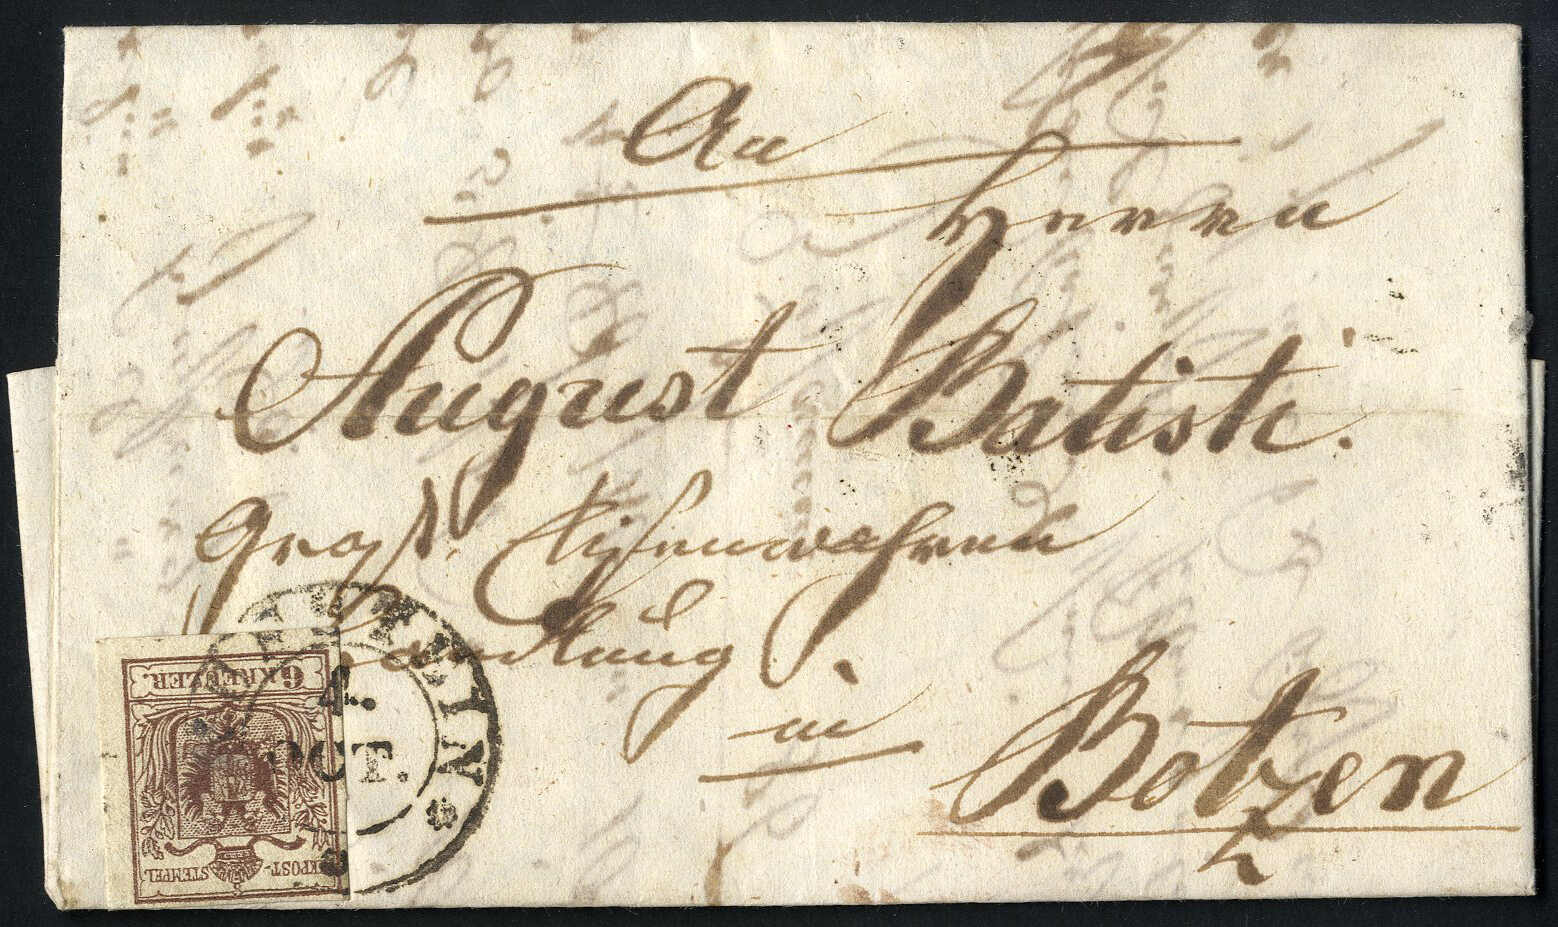 An
Herrn
August Batisti.
Groß Eisenwahren
handlung
in
Botzen
4.
OCT.
6 KREUZER.
KKPOST-
STEMPEL